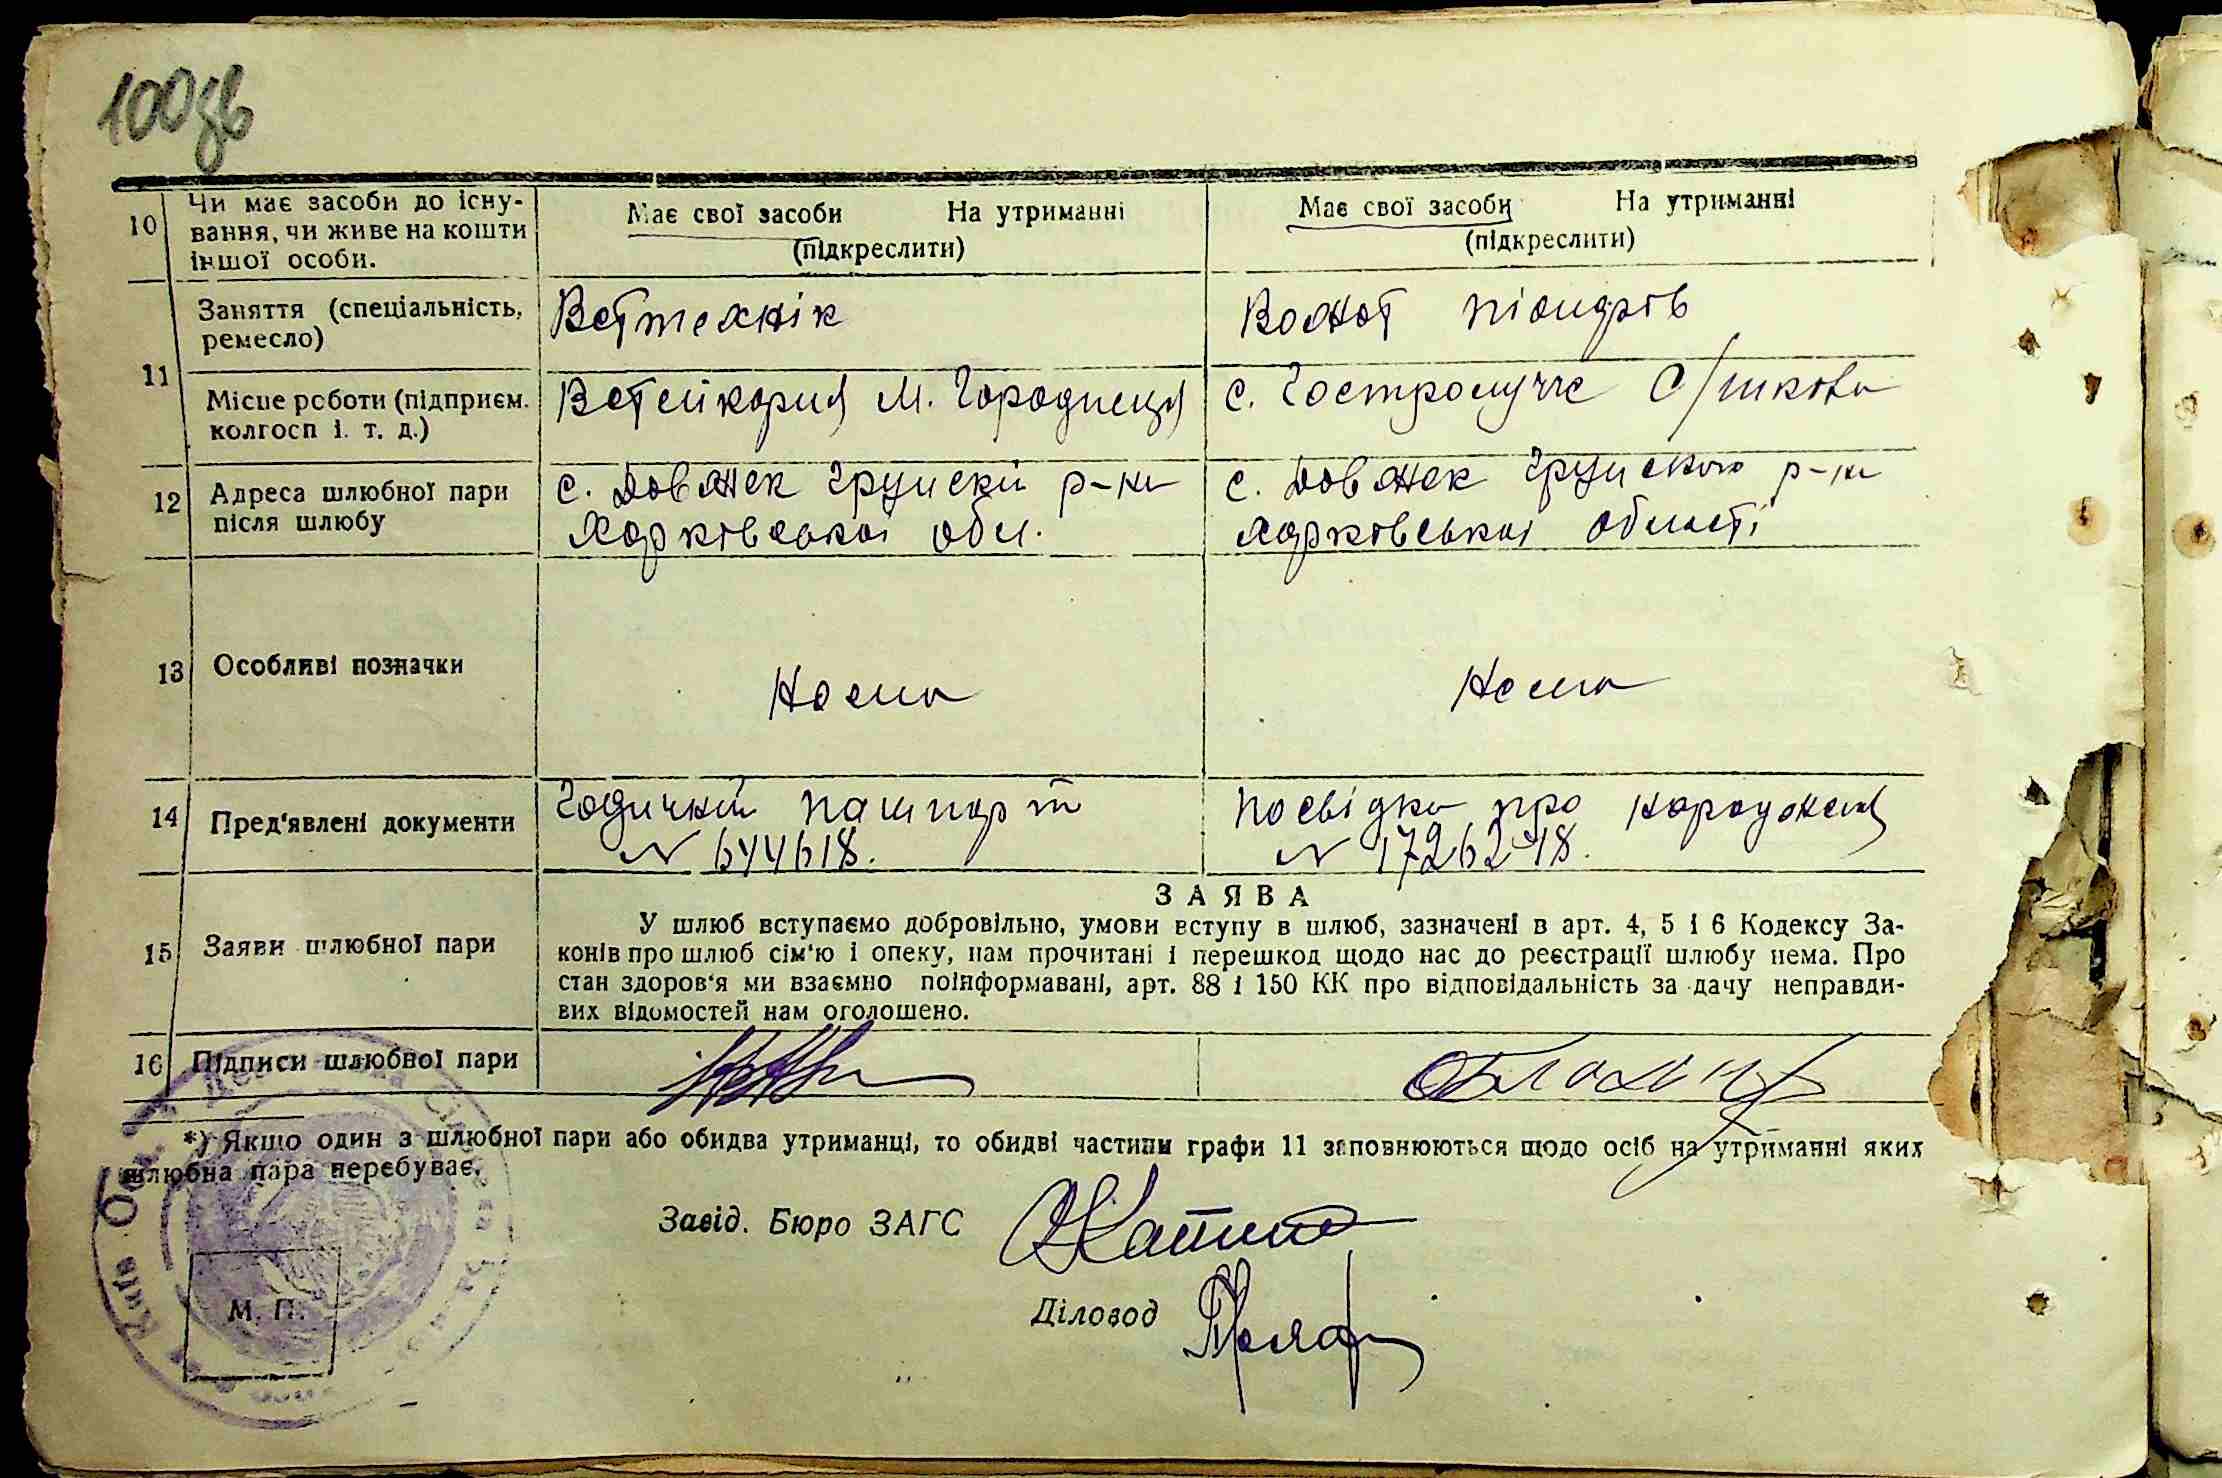 100зв
10 Чи має засоби до існу-
вання, чи живе на кошти
іншої особи.
Має свої засоби На утриманні
(підкреслити)
Має свої засоби На утриманні
(підкреслити)
11 Заняття (спеціальність,
ремесло)
Ветте­хнік
Вожат піонерів
Місце роботи (підприєм.
колгосп і. т. д.)
Ветлікарня м. Городниця
с. Гостролуччє С/школа
12 Адреса шлюбної пари
після шлюбу
с. Довжек р-на
Харківської обл.
с. Довжек р-на
Харківської області
13 Особливі позначки
Нема
Нема
14 Пред'явлені документи
Годичний пашпорт
№ 644618.
Посвідка про народження
№ 1726248.
15 Заяви шлюбної пари
ЗАЯВА
У шлюб вступаємо добровільно, умови вступу в шлюб, зазначені в арт. 4, 5 і 6 Кодексу За-
конів про шлюб сім'ю і опеку, нам прочитані і перешкод щодо нас до реєстрації шлюбу нема. Про
стан здоров'я ми взаємно поінформавані, арт. 88 і 150 КК про відповідальність за дачу неправди-
вих відомостей нам оголошено.
16 Підписи шлюбної пари
*) Якшо один з шлюбної пари або обидва утриманці, то обидві частини графи 11 заповнюються щодо осіб на утриманні яких
шлюбна пара перебуває.
Завід. Бюро ЗАГС
Діловод
М. П.